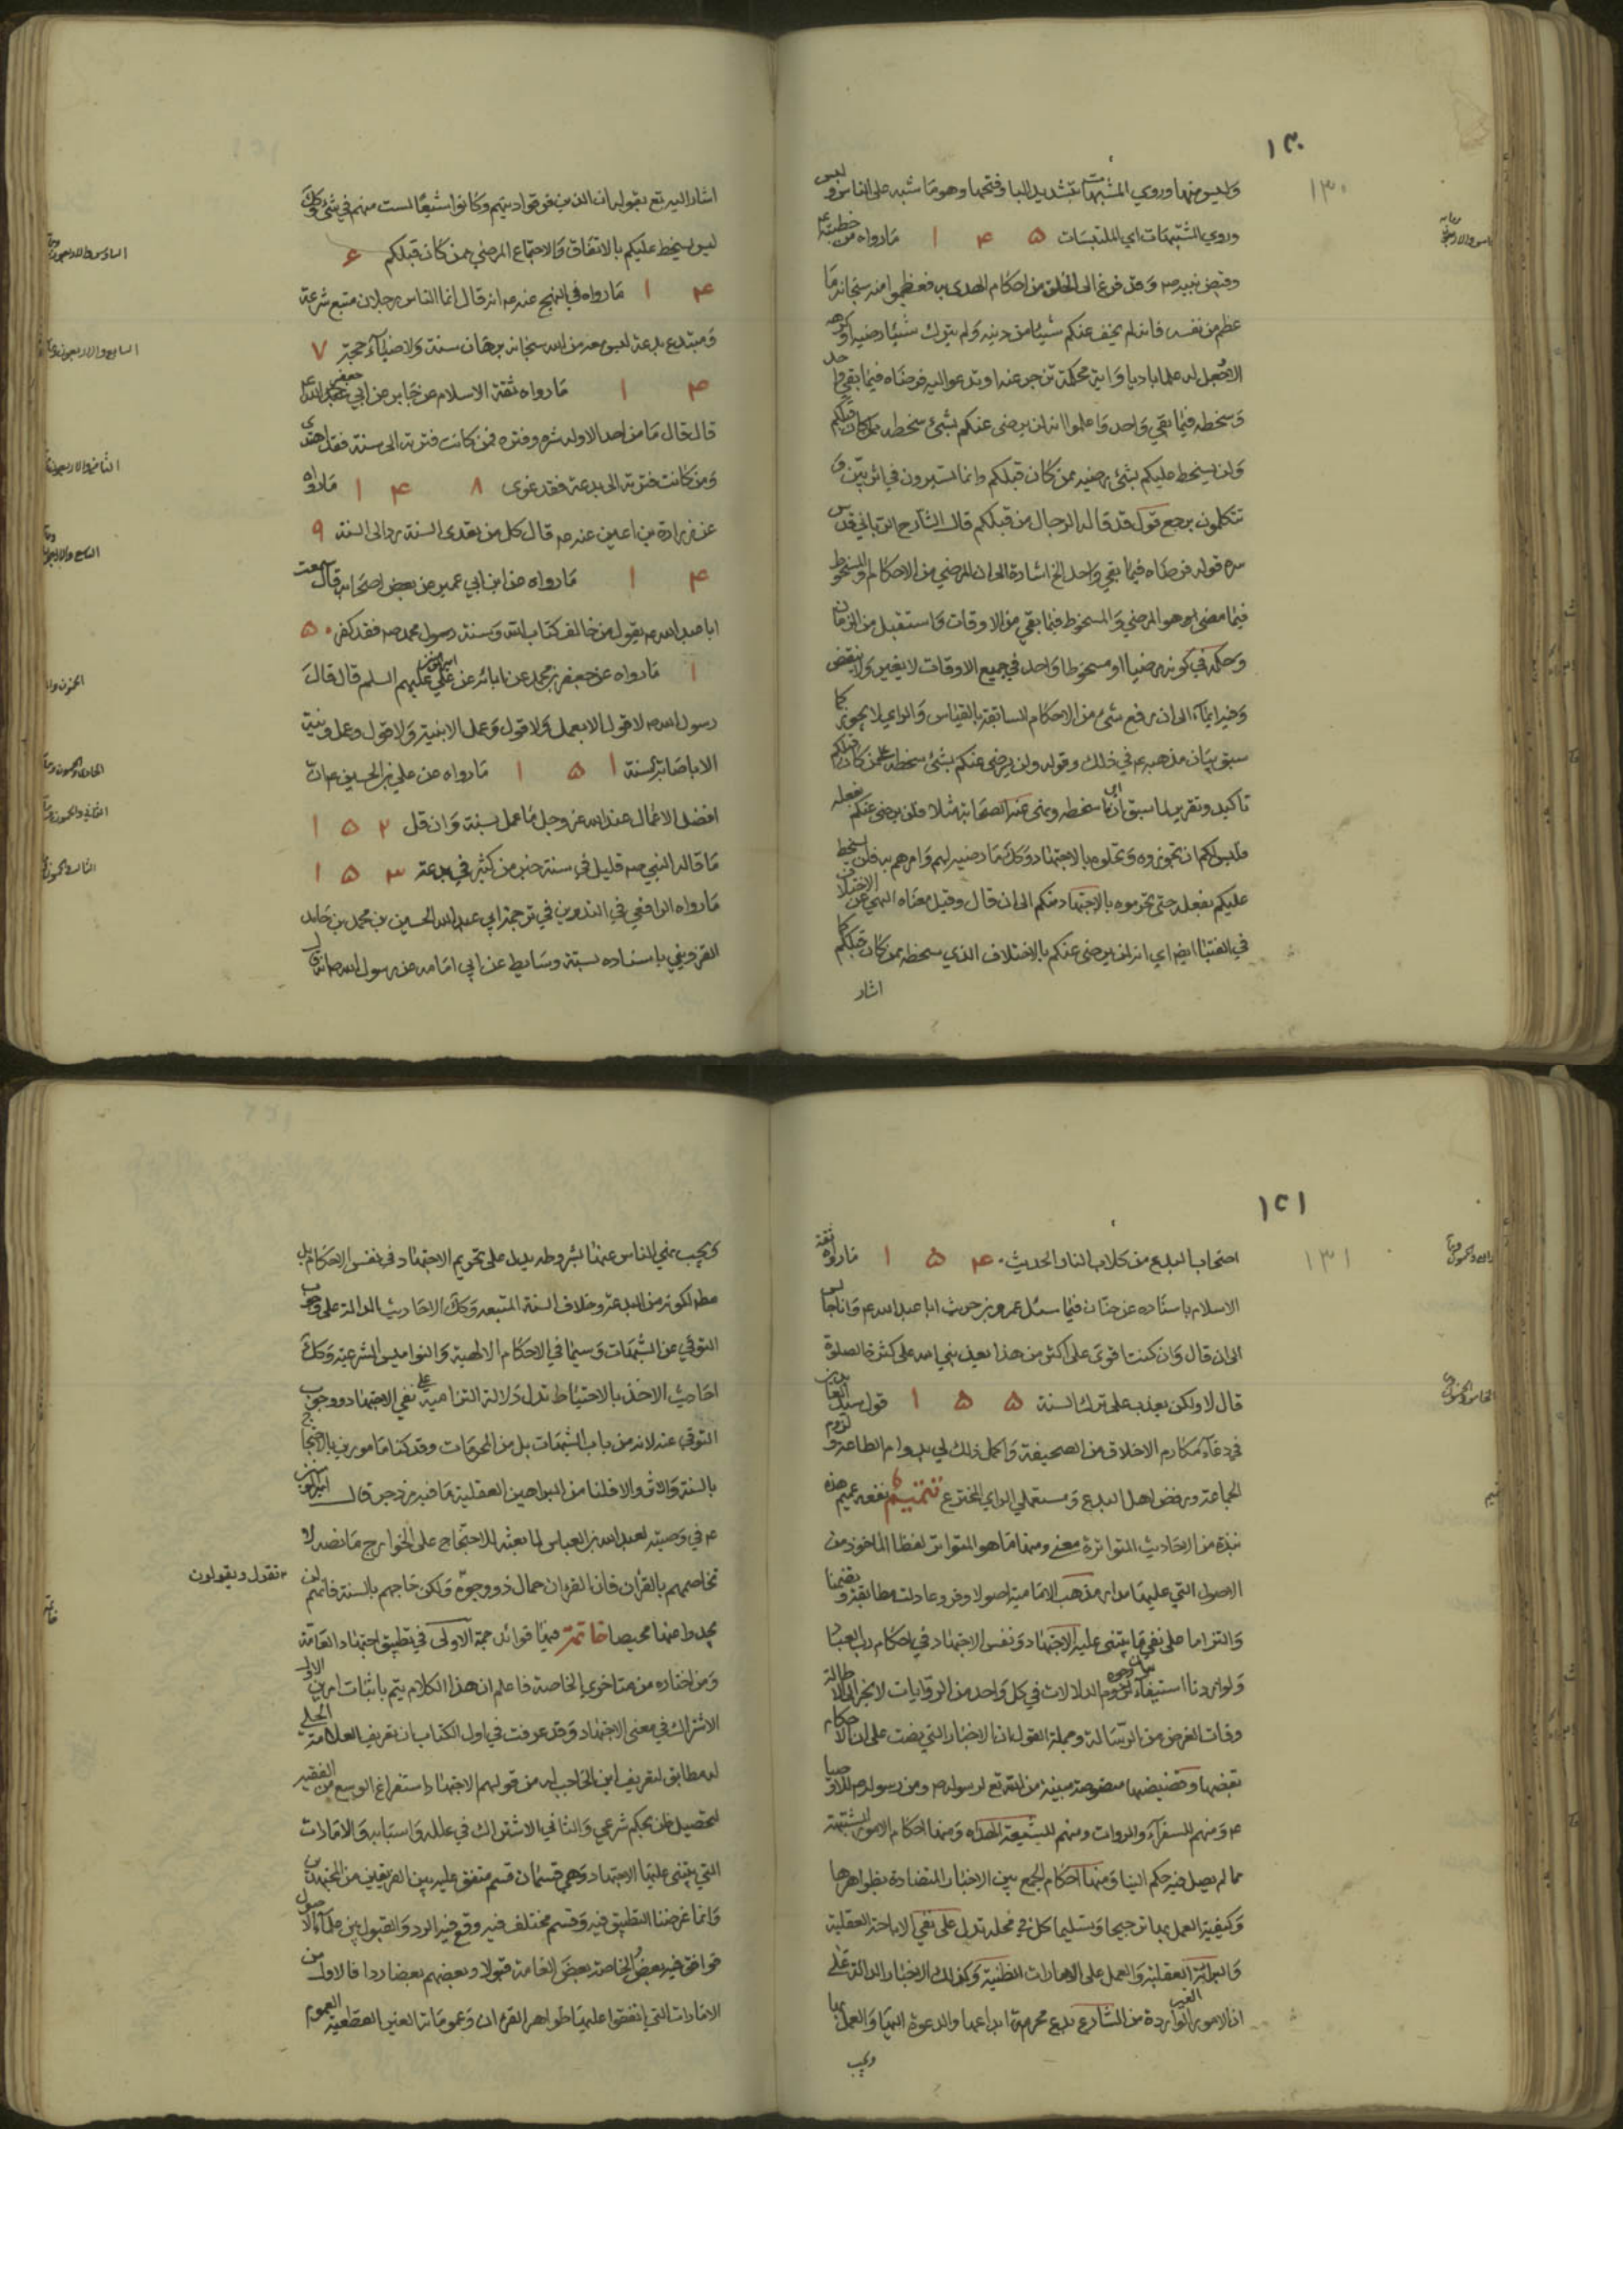 ١٣٠
١٣٠
وليس منها وروي المشبهات بتشديد البا وفتحها وهو ما شبه على الناس وليس
وروي الشبهات اي الملتبسات ١٤٥ ما رواه من خطبته ع
وقبض نبيه ص وقد فرغ الى الخلق من احكام الهدى به فعظموا منه سبحانه ما
عظم من نفسه فانه لم يخف عنكم شيئا من دينه ولم يترك شيئا رضيه او كرهه
الا وجعل له علما باديا واية محكمة تزجر عنه او تدعو اليه فرضاه فيما بقي واحد
وسخطه فيما بقي واحد واعلموا انه لن يرضى عنكم بشئ سخطه على من كان قبلكم
ولن يسخط عليكم بشئ رضيه ممن كان قبلكم وانما تسيرون في اثر بيّن و
تتكلمون برجع قول قد قاله الرجال من قبلكم قال الشارح البحراني قدس
سره قوله فرضاه فيما بقي واحد الخ اشارة الى ان المرضي من الاحكام والمسخوط
فيما مضى هو المرضي والمسخوط فيما بقي من الاوقات واستقبل من الزمان
وحكمه في كونه مرضيا او مسخوطا واحد في جميع الاوقات لا يتغير ولا ينتقض
وفيه ايماء الى ان رفع شئ من الاحكام السابقة بالقياس والراي لا يجوز كما
سبق بيان مذهبه ع في ذلك وقوله ولن يرضى عنكم بشئ سخطه على من كان قبلكم
تاكيد وتقرير لما سبق اي ان ما سخطه ونهى عنه الصحابة مثلا فلن يرضى عنكم بفعله
فليس لكم ان تجوزوه وتحلوه بالاجتهاد وكك ما رضيه لهم وامرهم به فلن يسخط
عليكم بفعله حتى تحرموه بالاجتهاد منكم الى ان قال وقيل معناه النهي عن الاختلاف
في الفتيا ايضا اي انه لن يرضى عنكم بالاختلاف الذي سخطه ممن كان قبلكم كما
اشار
اشار اليه تع بقوله ان الذين فرقوا دينهم وكانوا شيعا لست منهم في شئ وكك
ليس يسخط عليكم بالاتفاق والاجتماع المرضي ممن كان قبلكم ٦
١٤ ما رواه في النهج عنه ع انه قال انما الناس رجلان متبع شرعة
السادس والاربعون
ومبتدع بدعة ليس معه من الله سبحانه برهان سنة ولا ضياء حجة ٧
السابع والاربعون
١٤ ما رواه ثقة الاسلام عن جابر عن ابي جعفر ع
قال قال ما من احد الا وله شره وفتره فمن كانت فترته الى سنة فقد اهتدى
الثامن والاربعون
ومن كانت فترته الى بدعة فقد غوى ١٤٨ ما رواه
عن زرارة بن اعين عنه ع قال كل من تعدى السنة رد الى السنة ٩
التاسع والاربعون
١٤ ما رواه عن ابن ابي عمير عن بعض اصحابه قال سمعت
ابا عبد الله ع يقول من خالف كتاب الله وسنة رسول محمد ص فقد كفر ٥٠
١ ما رواه عن جعفر بن محمد عن ابائه عن امير المؤمنين علي عليهم السلم قال قال
رسول الله ص لا قول الا بعمل ولا قول وعمل الا بنية ولا قول وعمل ونية
الا باصابة السنة ١٥١ ما رواه عن علي بن الحسين ع ان
الحادي والخمسون
افضل الاعمال عند الله عز وجل ما عمل بسنة وان قل ١٥٢
الثاني والخمسون
ما قاله النبي ص قليل في سنة خير من كثير في بدعة ١٥٣
الثالث والخمسون
ما رواه الرافعي في التدوين في ترجمة ابي عبد الله الحسين بن محمد بن حامد
القزويني باسناده بستة وسايط عن ابي امامه عن رسول الله ص انه قال
١٣١
١٣١
اصحاب البدع من كلاب النار الحديث ١٥٤ ما رواه ثقة
الاسلام باسناده عن حنان فيما سئل عمرو بن حريث ابا عبد الله ع وانا جالس
الى ان قال وان كنت اقوى على اكثر من هذا يعذبني الله على كثرة الصلوة
قال لا ولكن يعذب على ترك السنة ١٥٥ قول سيد العابدين
الخامس والخمسون
في دعاء مكارم الاخلاق من الصحيفة واكمل ذلك لي بدوام الطاعة ولزوم
الجماعة ورفض اهل البدع ومستعملي الراي المخترع تتميم نفعه عميم هذه
نبذة من الاحاديث المتواترة معنى ومنها ما هو المتواتر لفظا الماخوذ من
الاصول التي عليها مدار مذهب الامامية اصولا وفروعا دلت مطابقة وتضمنا
والتزاما على نفي ما يبتنى عليه الاجتهاد ونفس الاجتهاد في احكام رب العباد
ولو اردنا استيفاء بيان وجوه الدلالات في كل واحد من الروايات لانجر الى الاطالة
وفات الغرض من الرسالة وجملة القول ان الاخبار التي نصت على ان الاحكام
بعضها وقضيضها منصوصة مبينة من الله تع لرسوله ص ومن رسوله ص للاوصيا
ع ومنهم للسفراء والروات ومنهم للشيعة الهداه ومنها احكام الامور المشتبهة
مما لم يصل فيه حكم الينا ومنها احكام الجمع بين الاخبار المتضادة بظواهرها
وكيفية العمل بها ترجيحا وتسليما كل في محله تدل على نفي الاباحة العقلية
والبرائة العقلية والعمل على الامارات الظنية وكذلك الاخبار الدالة على
ان الامور الغير الواردة من الشارع بدع محرمة ابداعها والدعوة اليها والعمل بها
ويجب
ويجب نهي الناس عنها بشروطه يدل على تحريم الاجتهاد في نفس الاحكام بل
مطلقا لكونه من البدعة وخلاف السنة المتبعه وكك الاحاديث الدالة على وجوب
التوقي عن الشبهات وسيما في الاحكام الالهية والنواميس الشرعية وكك
احاديث الاخذ بالاحتياط تدل دلالة التزامية على نفي الاجتهاد ووجوب
التوقي عنه لانه من باب الشبهات بل من المحرمات وقد كنا مامورين بالاحتجاج
بالسنة والاثر والا قلنا من البراهين العقلية ما فيه مزدجر قال امير المؤمنين
ع في وصيته لعبد الله بن العباس لما بعثه للاحتجاج على الخوارج ما نصه لا
تخاصمهم بالقرآن فان القران حمال ذو وجوه ولكن حاجهم بالسنة فانهم لن
تقول ويقولون
يجدوا عنها محيصا خاتمة فيها فوائد جمة الاولى في تطبيق اجتهاد العامة
ومن اختاره من متاخري الخاصة فاعلم ان هذا الكلام يتم باثبات امرين الاول
الاشتراك في معنى الاجتهاد وقد عرفت في اول الكتاب ان تعريف العلامة الحلي
له مطابق لتعريف ابن الحاجب له من قولهم الاجتهاد استفراغ الوسع من الفقيه
لتحصيل ظن بحكم شرعي والثاني الاشتراك في علله واسبابه والامارات
التي يبتنى عليها الاجتهاد وهي قسمان قسم متفق عليه بين الفريقين من المجتهدين
وانما غرضنا التطبيق فيه وقسم مختلف فيه وقع فيه الرد والقبول بين علماء الاصول
فوافق فيه بعض الخاصة بعض العامة قبولا وبعضهم بعضا ردا فالاول من
الامارات التي اتفقوا عليها ظواهر القران وعموماته الغير القطعية العموم